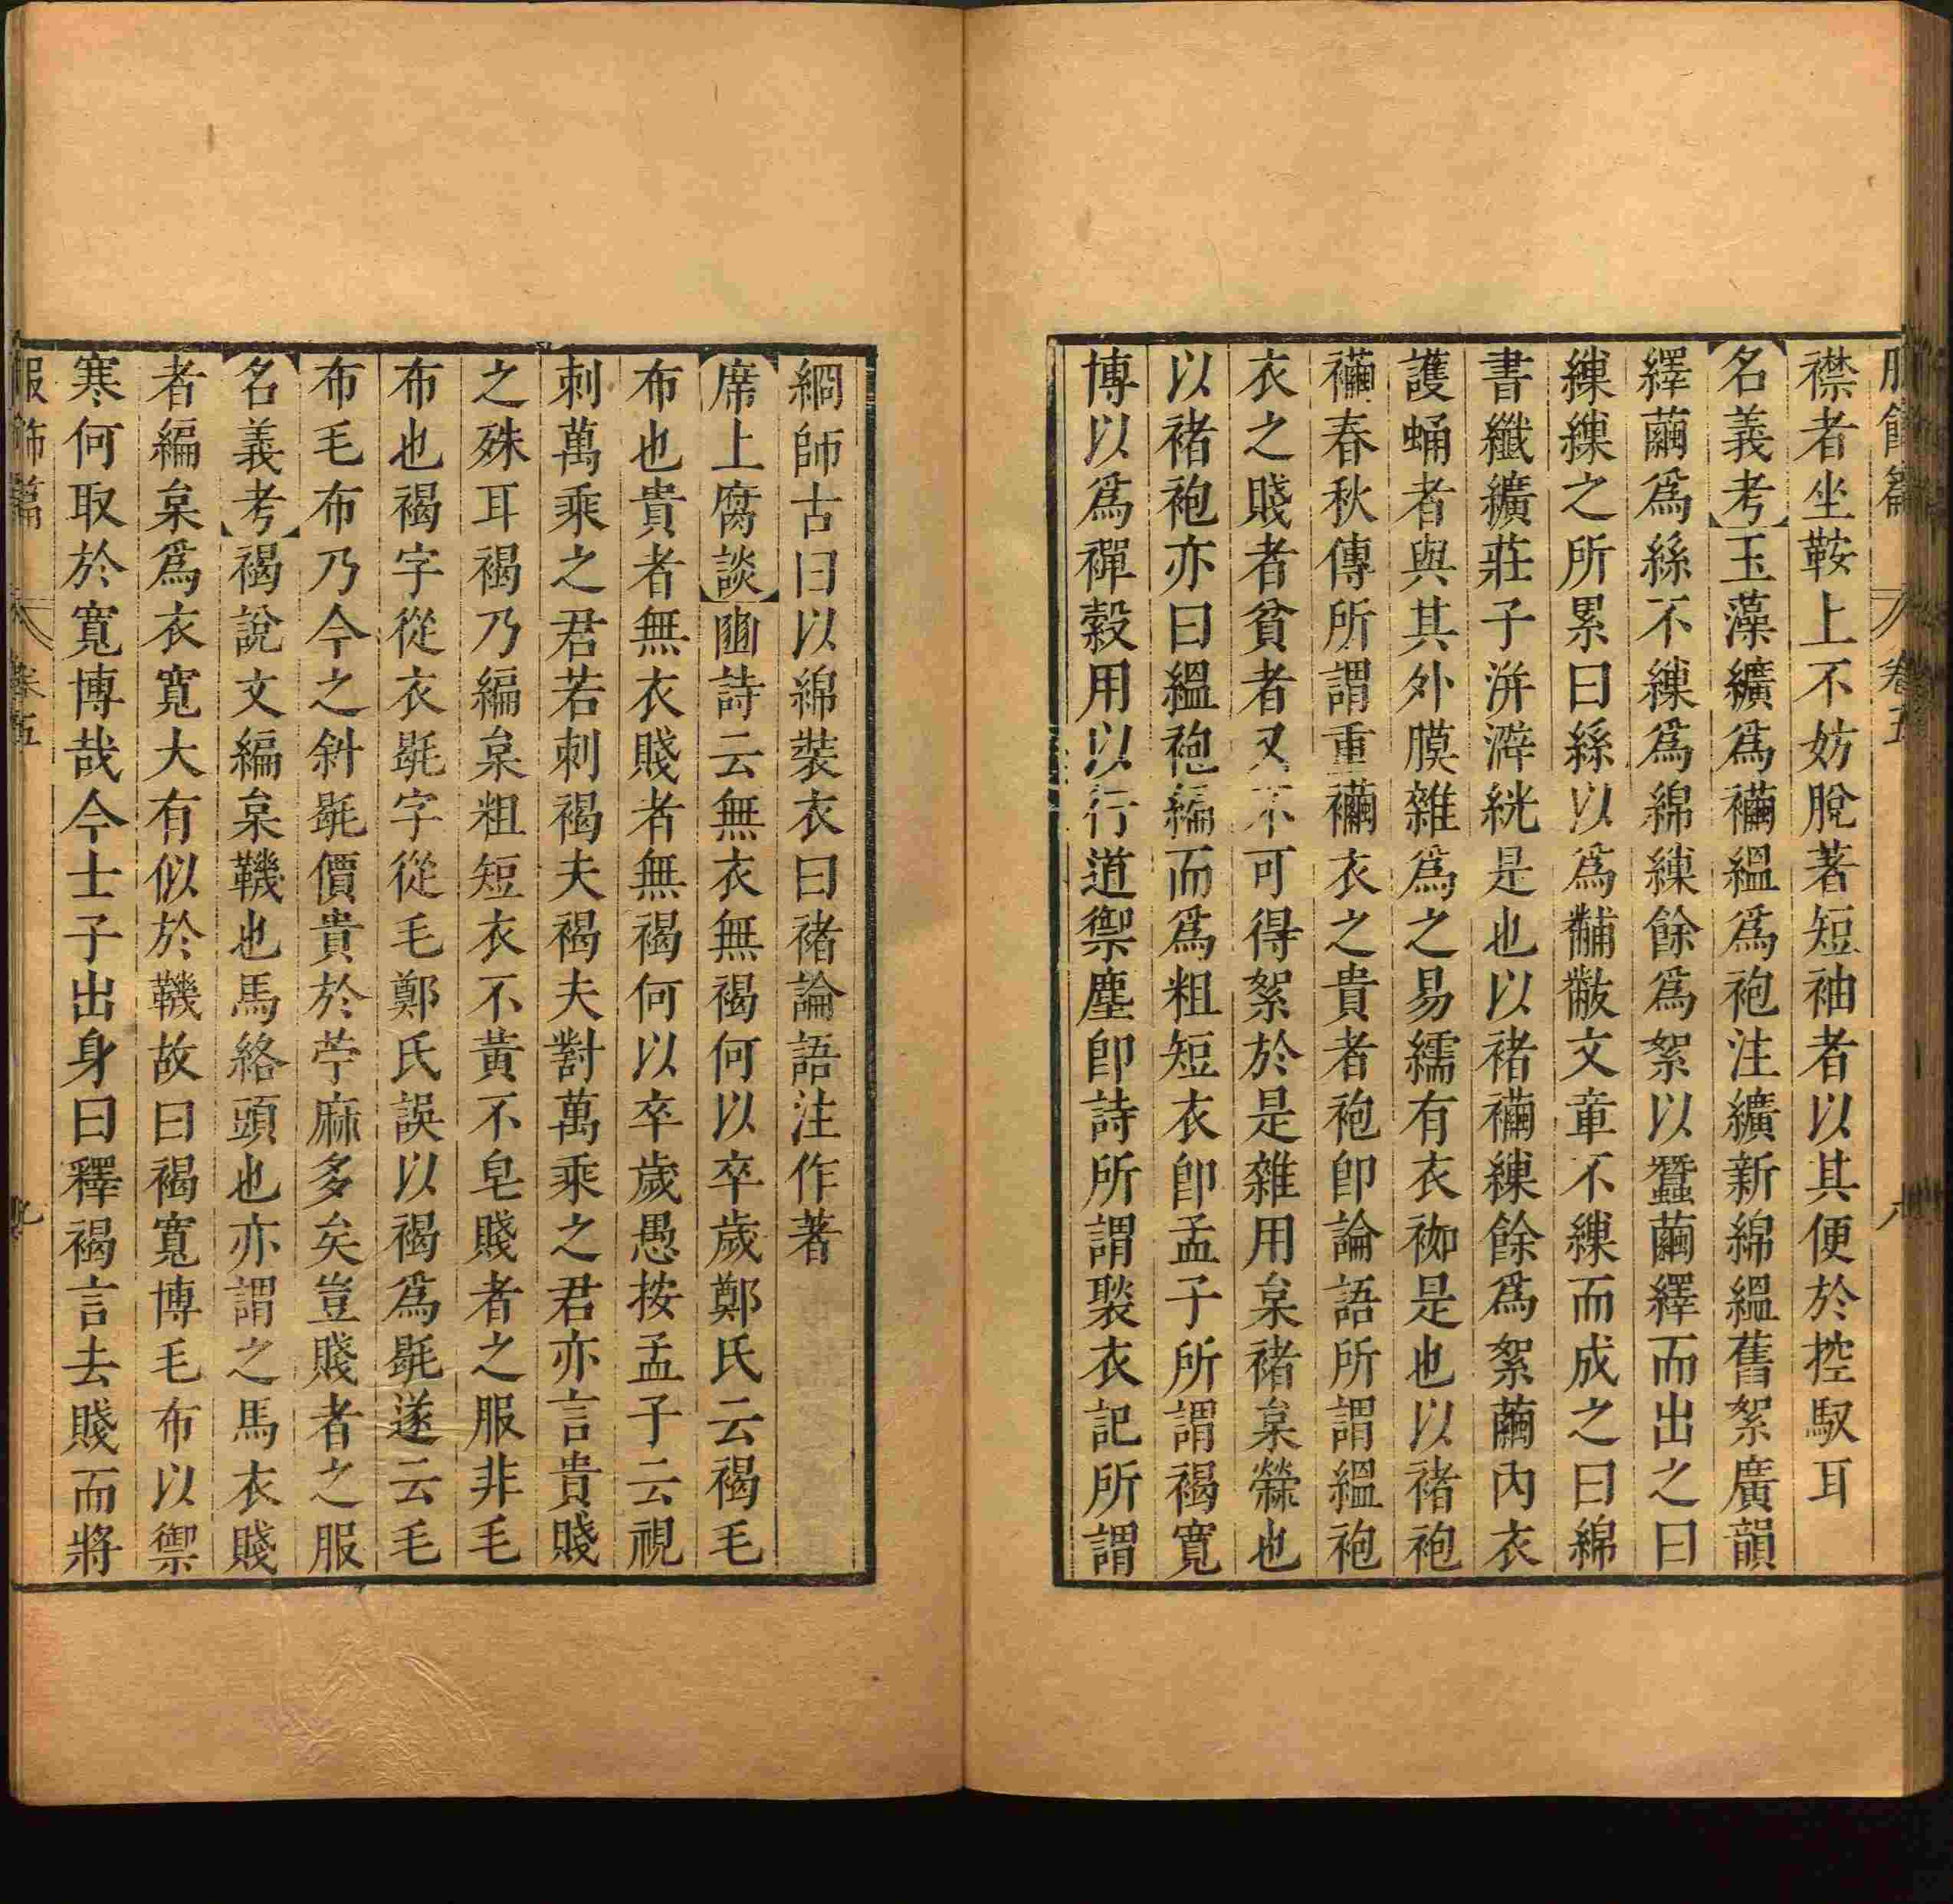 服飾篇 卷五 八
襟者坐鞍上不妨脫著短袖者以其便於控馭耳
【名義考】玉藻纊爲襺縕爲袍注纊新綿縕舊絮廣韻
繹繭爲絲不練爲綿練餘爲絮以蠶繭繹而出之曰
練練之所累曰絲以爲黼黻文章不練而成之曰綿
書纖纊莊子洴澼絖是也以褚襺練餘爲絮繭內衣
護蛹者與其外膜雜爲之易繻有衣袽是也以褚袍
襺春秋傳所謂重襺衣之貴者袍卽論語所謂縕袍
衣之賤者貧者又不可得絮於是雜用枲褚枲檾也
以褚袍亦曰縕袍編而爲粗短衣卽孟子所謂褐寬
博以爲襌縠用以行道禦塵卽詩所謂褧衣記所謂
綱師古曰以綿裝衣曰褚論語注作著
【席上腐談】豳詩云無衣無褐何以卒歲鄭氏云褐毛
布也貴者無衣賤者無褐何以卒歲愚按孟子云視
刺萬乘之君若刺褐夫褐夫對萬乘之君亦言貴賤
之殊耳褐乃編枲粗短衣不黃不皂賤者之服非毛
布也褐字從衣毼字從毛鄭氏誤以褐爲毼遂云毛
布毛布乃今之斜毼價貴於苧麻多矣豈賤者之服
【名義考】褐說文編枲韈也馬絡頭也亦謂之馬衣賤
者編枲爲衣寬大有似於韈故曰褐寬博毛布以禦
寒何取於寬博哉今士子出身曰釋褐言去賤而將
服飾篇 卷五 九